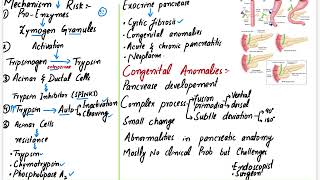 Mechanism ↓ Risk:-
① Pro-Enzymes
Zymogen Granules
② Activation
Trypsinogen → Trypsin
③ Acinar & Ductal Cells
Trypsin Inhibitor (SPINK1)
④ Trypsin → Auto Inactivation
Cleaving
⑤ Acinar Cells
resistance
• Trypsin
• Chymotrypsin
• Phospholipase A₂
Exocrine pancreas
• Cystic fibrosis
• Congenital anomalies
• Acute & chronic pancreatitis
• Neoplasms
Congenital Anomalies:-
Pancreas developement
Complex process fusion ventral
primordia dorsal
Small change Subtle deviation 90°
Abnormalities in pancreatic anatomy
Mostly No clinical Prob but Challenge
Endoscopist
• Surgeon